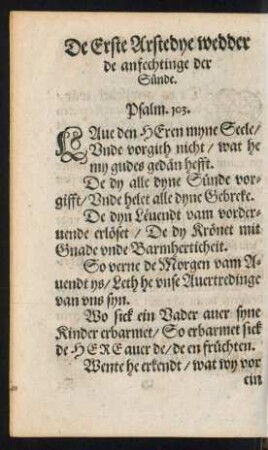 De Erste Arstedye wedder
de anfechtinge der
Sünde.
Psalm. 103.
LAue den HEren myne Seele/
Vnde vorgith nicht/ wat he
my gudes gedân hefft.
De dy alle dyne Sünde vor-
gifft/ Vnde helet alle dyne Gebreke.
De dyn Leuendt vam vorder-
uende erlöset/ De dy Krönet mit
Gnade vnde Barmherticheit.
So verne de Morgen vam A-
uendt ys/ Leth he vnse Auertredinge
van vns syn.
Wo sick ein Vader auer syne
Kinder erbarmet/ So erbarmet sick
de HERE auer de/ de en früchten.
Wente he erkendt/ wat wy vor
ein